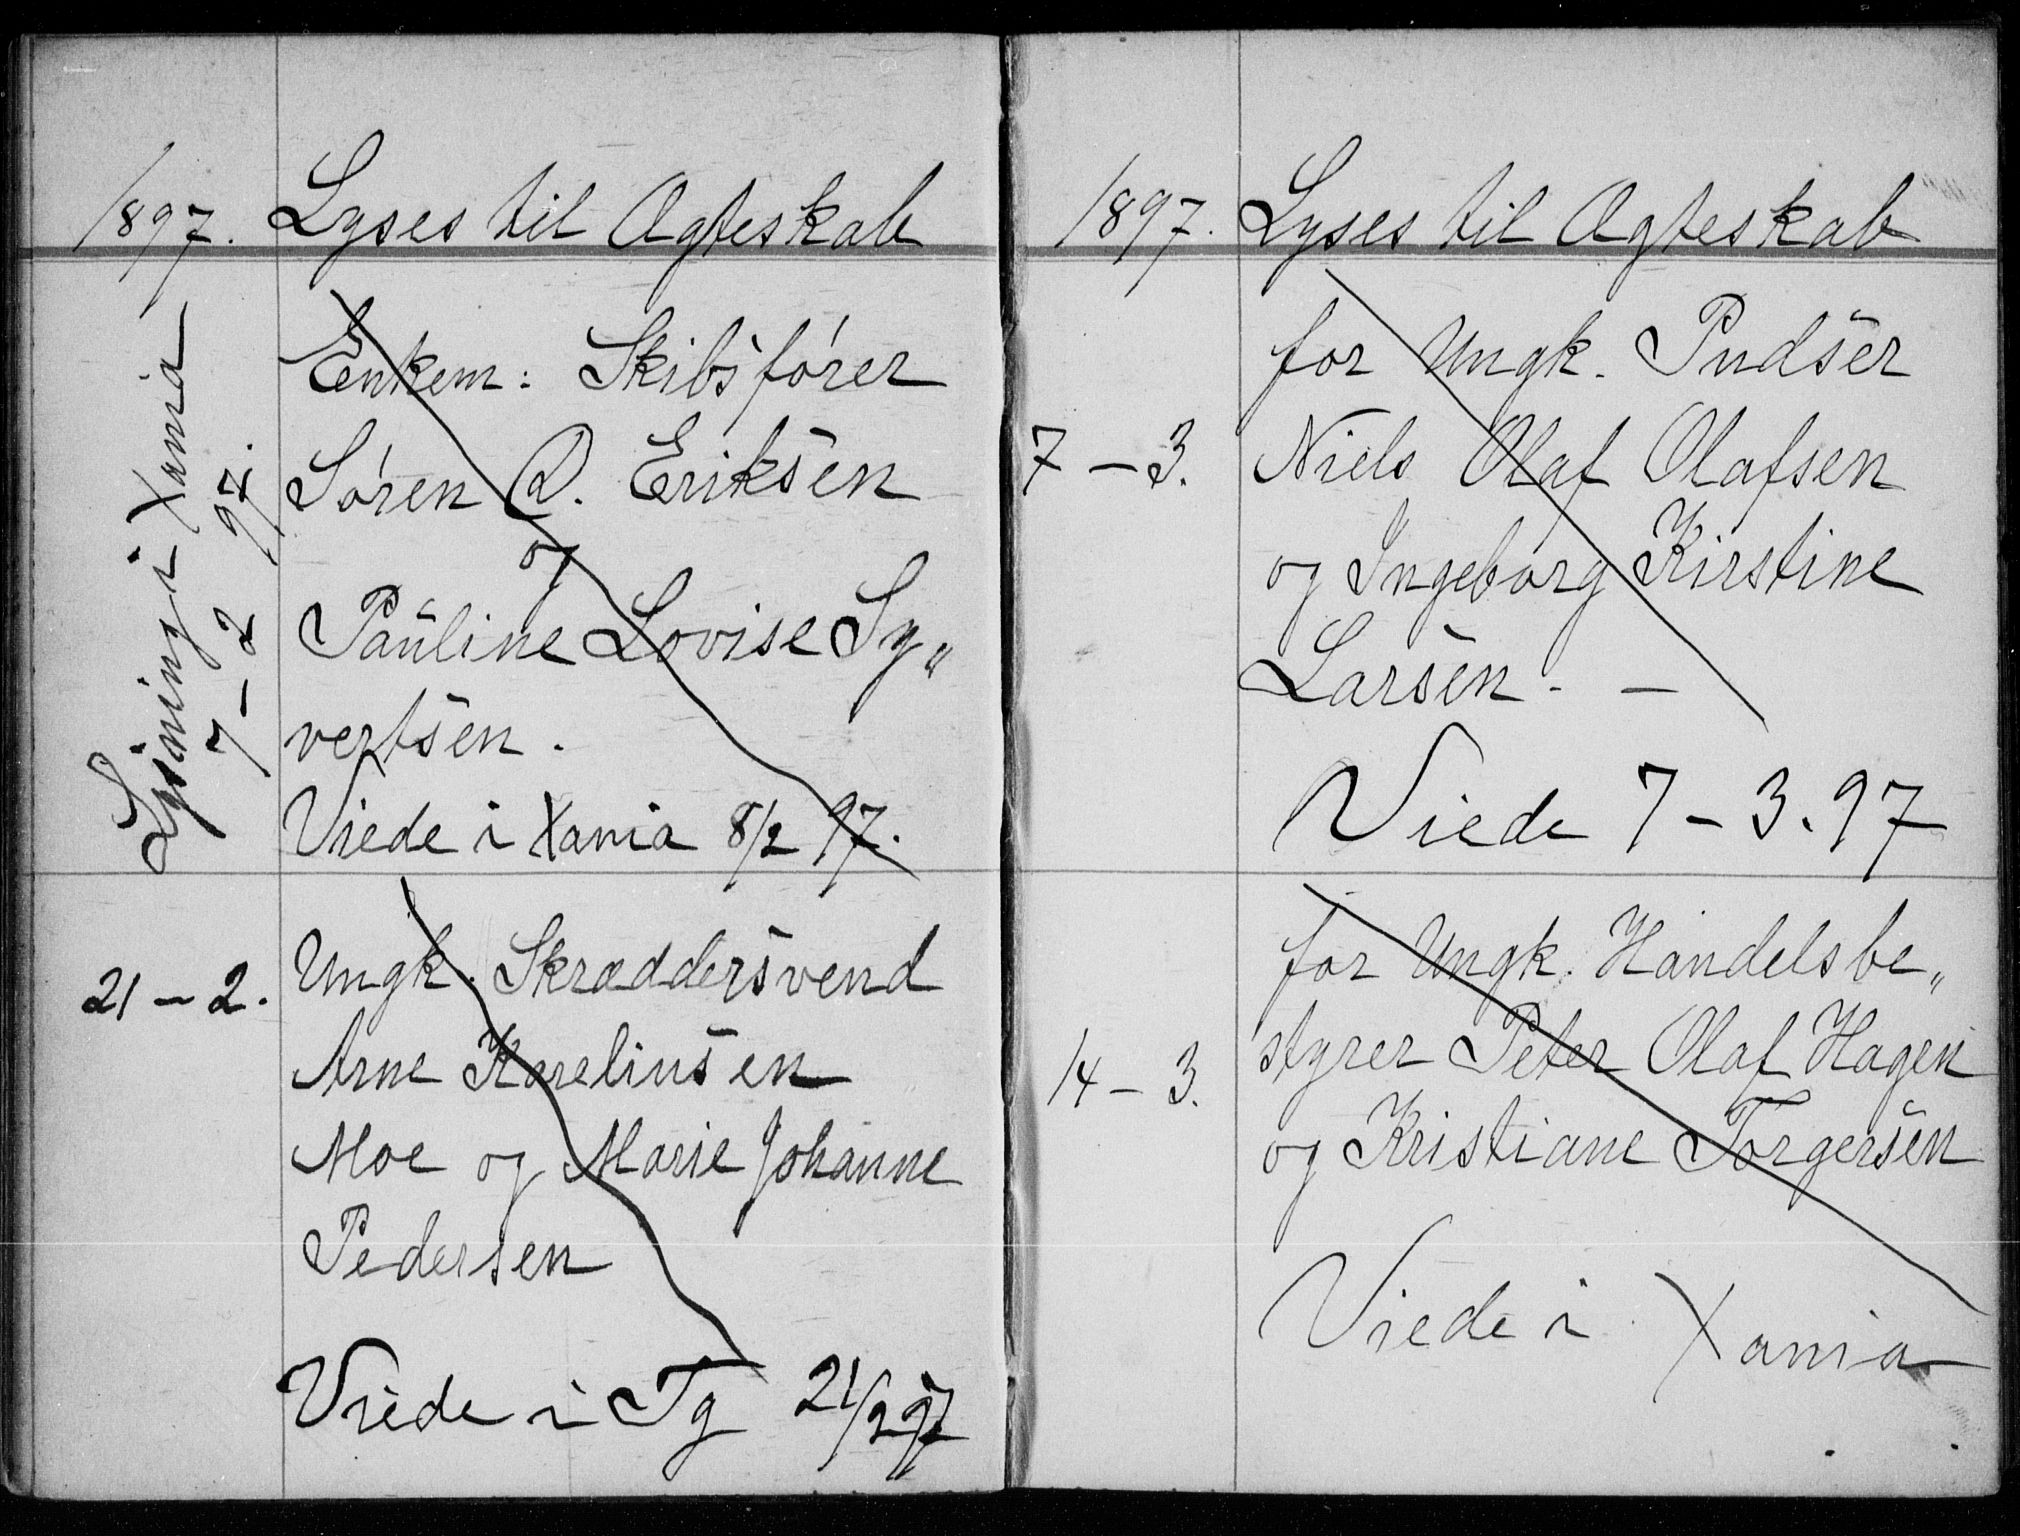 1897. Lyses til Ægteskab
Lysning i Xania
7 – 2 97.
Enkem: Skibsfører
Søren D. Eriksen
og
Pauline Lovise Sy„
vertsen.
Viede i Xania 8/2 97.
21 – 2. Ungk. Skræddersvend
Arne Kareliusen
Moe og Marie Johanne
Pedersen
Viede i Tg 21/2 97
1897. Lyses til Ægteskab
for Ungk. Pudser
7 – 3. Niels Olaf Olafsen
og Ingeborg Kirstine
Larsen. –
Viede 7 – 3. 97
for Ungk. Handelsbe„
styrer Peter Olaf Hagen
14 – 3.
og Kristiane Torgersen
Viede i Xania